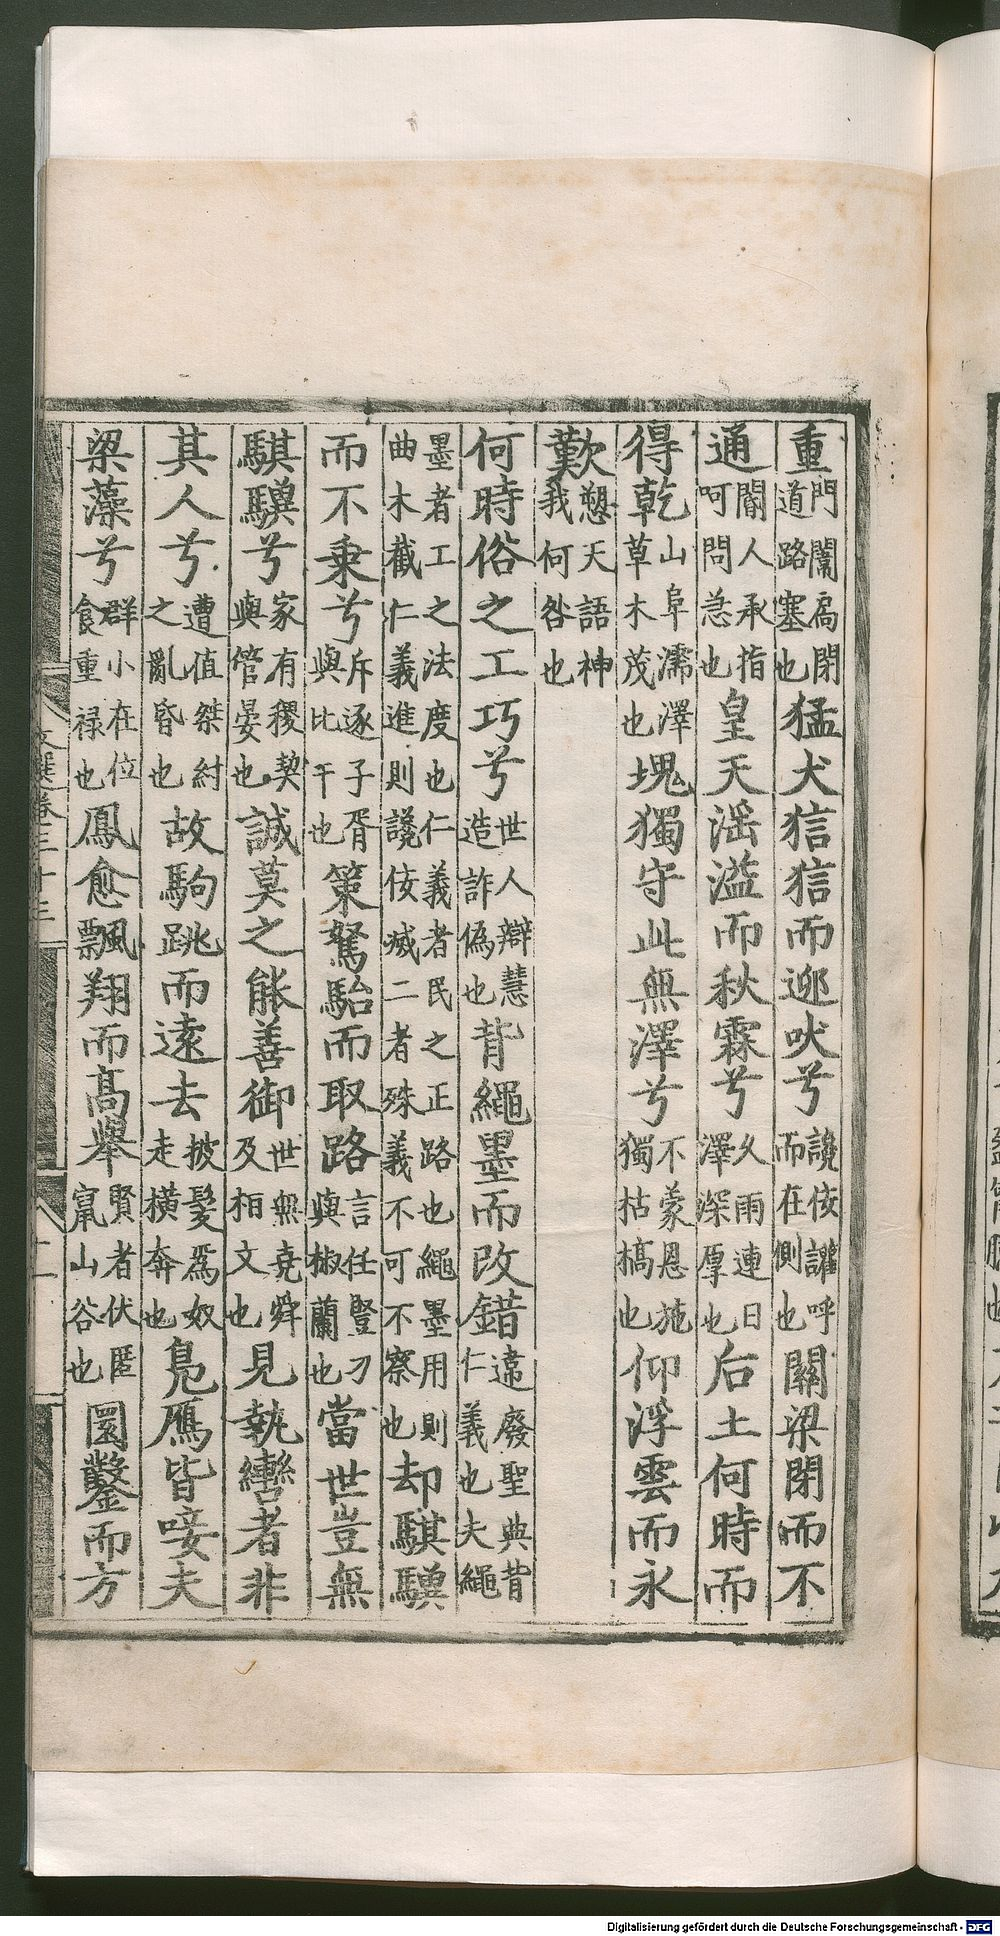 重門闈扄閉道路塞也猛犬狺狺而迎吠兮讒佞讙呼而在側也關梁閉而不
通閽人承指呵問急也皇天滛溢而秋霖兮乆雨連日澤深厚也后土何時而
得乾山阜濡澤草木茂也塊獨守此無澤兮不蒙恩施獨枯槁也仰浮雲而永
歎愬天語神我何咎也
何時俗之工巧兮世人辯慧造詐偽也背繩墨而改錯違廢聖典背仁義也夫繩
墨者工之法度也仁義者民之正路也繩墨用則曲木截仁義進則讒佞滅二者殊義不可不察也却騏驥
而不乗兮斥逐子胥與比干也策駑駘而取路言任豎刁與椒蘭也當世豈無
騏驥兮家有稷契與管晏也誠莫之能善御世無尭舜及桓文也見執轡者非
其人兮遭値桀紂之亂昏也故駒跳而逺去披髮爲奴走橫奔也鳧鴈皆唼夫
梁藻兮群小在位食重禄也鳳愈飄翔而髙舉賢者伏匿竄山谷也圎鑿而方
文選卷三十三
二
Digitalisierung gefördert durch die Deutsche Forschungsgemeinschaft - DFG